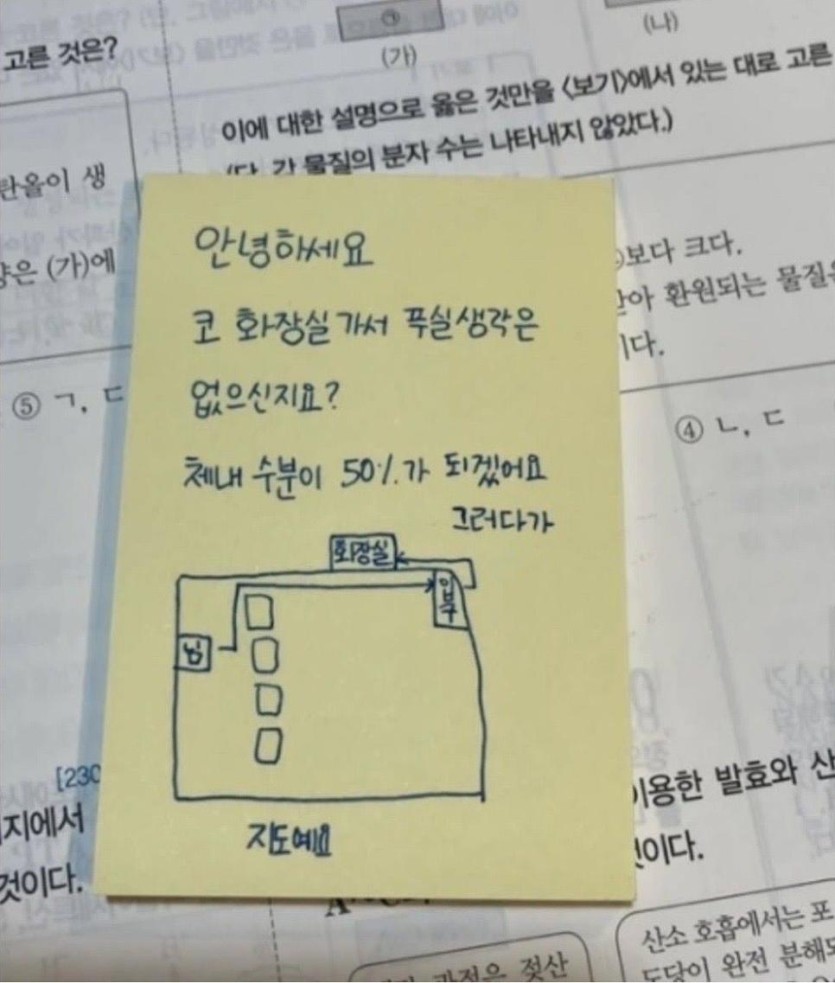 고른 것은?
(가)
(나)
이에 대한 설명으로 옳은 것만을 <보기>에서 있는 대로 고른
(단, 각 물질의 분자 수는 나타내지 않았다.)
탄올이 생
(가)에
⑤ ㄱ, ㄷ
안녕하세요
코 화장실가서 푹실생각은
없으신지요?
체내 수분이 50%가 되겠어요
그러다가
화장실
입구
님
지도예요
보다 크다.
환원되는 물질은
④ ㄴ, ㄷ
[230
지에서
것이다.
이용한 발효와 산
것이다.
산소 호흡에서는 포
도당이 완전 분해되
과정은 젖산